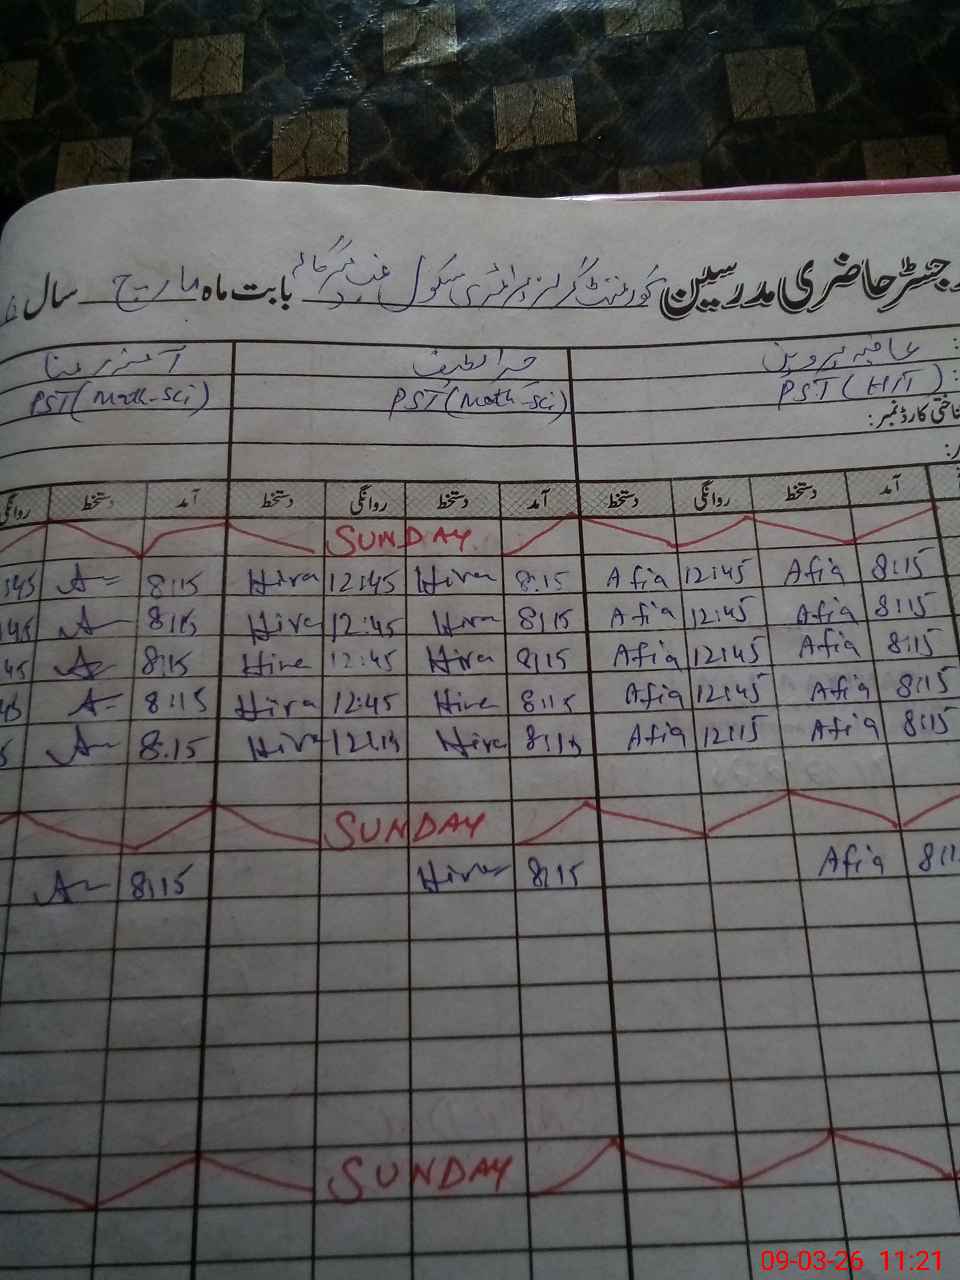 رجسٹر حاضری مدرسین گورنمنٹ گرلز پرائمری سکول بابت ماہ مارچ سال
عافیہ پروین حرا لطیف
PST (H/T) PST (Math-Sci) PST (Math-Sci)
شناختی کارڈ نمبر:
آمد دستخط روانگی دستخط آمد دستخط روانگی دستخط آمد دستخط روانگی
SUNDAY
8:15 Afia 12:45 Afia 8:15 Hira 12:45 Hira 8:15 A :45
8:15 Afia 12:45 Afia 8:15 Hira 12:45 Hira 8:15 A :45
8:15 Afia 12:45 Afia 8:15 Hira 12:45 Hira 8:15 A 45
8:15 Afia 12:45 Afia 8:15 Hira 12:45 Hira 8:15 A 45
8:15 Afia 12:15 Afia 8:15 Hira 12:15 Hira 8:15 A 5
SUNDAY
8:1 Afia 8:15 Hira 8:15 A
SUNDAY
09-03-26 11:21